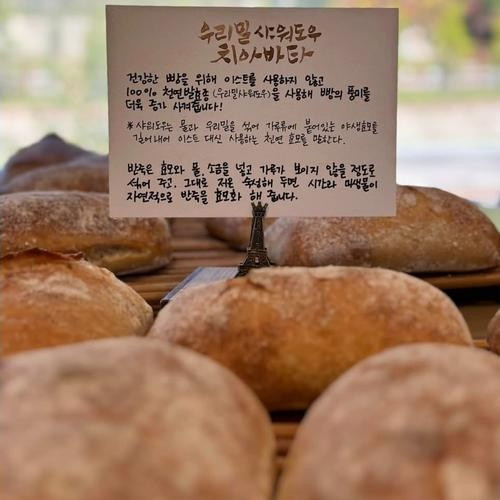 우리밀 사워도우
치아바타
건강한 빵을 위해 이스트를 사용하지 않고
100% 천연발효종(우리밀사워도우)을 사용해 빵의 풍미를
더욱 증가 시켜줍니다!
※ 사워도우는 물과 우리밀을 섞어 가루류에 붙어있는 야생효모를
길어내어 이스트 대신 사용하는 천연 효모를 말한다.
반죽은 효모와 물, 소금을 넣고 가루가 보이지 않을 정도로
섞어 주고. 그대로 저온 숙성해 두면 시간과 미생물이
자연적으로 반죽을 효모화 해 줍니다.